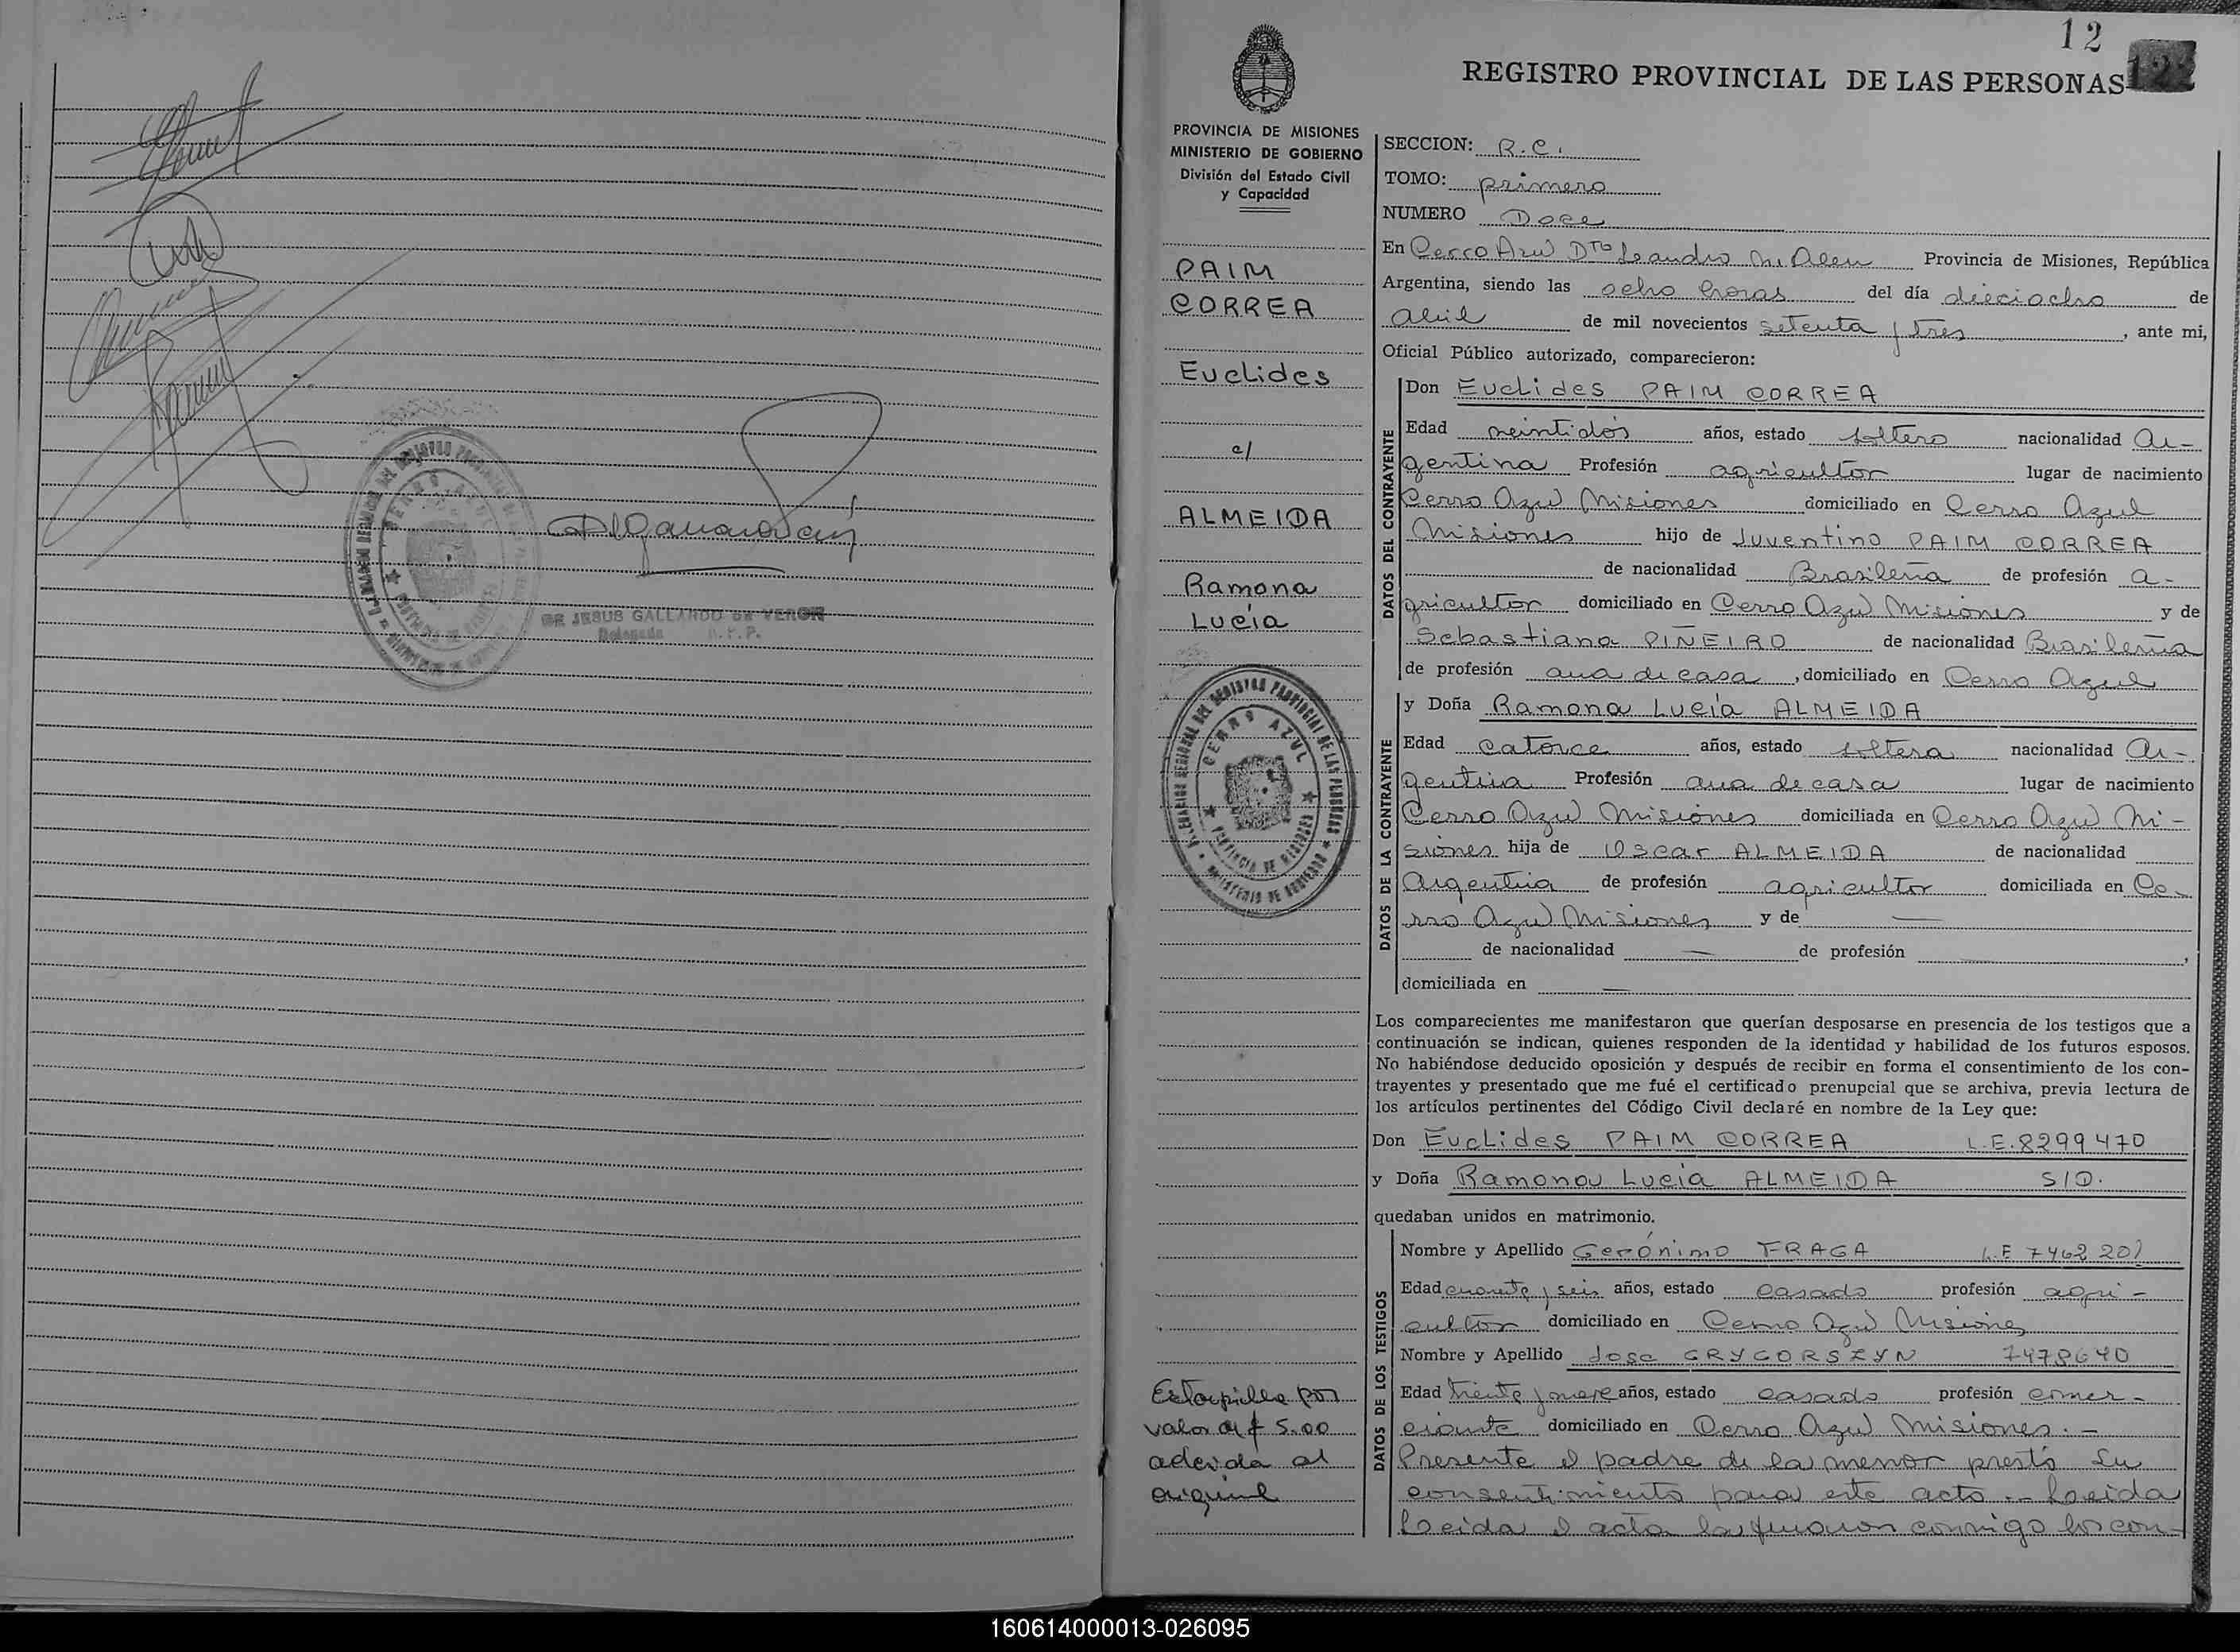 DE JESUS GALLARDO DE VERON
Delegada R.P.P.
12
122
REGISTRO PROVINCIAL DE LAS PERSONAS
PROVINCIA DE MISIONES
MINISTERIO DE GOBIERNO
División del Estado Civil
y Capacidad
PAIM
CORREA
Euclides
c/
ALMEIDA
Ramona
Lucía
CERRO AZUL
PROVINCIA DE MISIONES
Estampilla por
valor de $ 5.00
adevida al
original
SECCION: R.C.
TOMO: primero
NUMERO Doce
En Cerro Azul Dto Leandro N. Alem Provincia de Misiones, República
Argentina, siendo las ocho horas del día dieciocho de
abril de mil novecientos setenta y tres, ante mi,
Oficial Público autorizado, comparecieron:
DATOS DEL CONTRAYENTE
Don Euclides PAIM CORREA
Edad veintidós años, estado soltero nacionalidad Ar-
gentina Profesión agricultor lugar de nacimiento
Cerro Azul Misiones domiciliado en Cerro Azul
Misiones hijo de Juventino PAIM CORREA
de nacionalidad Brasileña de profesión a-
gricultor domiciliado en Cerro Azul Misiones y de
Sebastiana PIÑEIRO de nacionalidad Brasileña
de profesión ama de casa, domiciliado en Cerro Azul
DATOS DE LA CONTRAYENTE
y Doña Ramona Lucía ALMEIDA
Edad catorce años, estado soltera nacionalidad Ar-
gentina Profesión ama de casa lugar de nacimiento
Cerro Azul Misiones domiciliada en Cerro Azul Mi-
siones hija de Oscar ALMEIDA de nacionalidad
Argentina de profesión agricultor domiciliada en Ce-
rro Azul Misiones y de —
de nacionalidad — de profesión —,
domiciliada en —
Los comparecientes me manifestaron que querían desposarse en presencia de los testigos que a
continuación se indican, quienes responden de la identidad y habilidad de los futuros esposos.
No habiéndose deducido oposición y después de recibir en forma el consentimiento de los con-
trayentes y presentado que me fué el certificado prenupcial que se archiva, previa lectura de
los artículos pertinentes del Código Civil declaré en nombre de la Ley que:
Don Euclides PAIM CORREA L.E. 8299470
y Doña Ramona Lucía ALMEIDA S/D.
quedaban unidos en matrimonio.
DATOS DE LOS TESTIGOS
Nombre y Apellido Gerónimo FRAGA L.E 7462 201
Edad cuarenta y seis años, estado casado profesión agri-
cultor domiciliado en Cerro Azul Misiones
Nombre y Apellido José GRYGORSZYN 7478640
Edad treinta y nueve años, estado casado profesión comer-
ciante domiciliado en Cerro Azul Misiones.-
Presente el padre de la menor prestó su
consentimiento para este acto.- Leida
Leida el acta la firmaron conmigo los con-
160614000013-026095